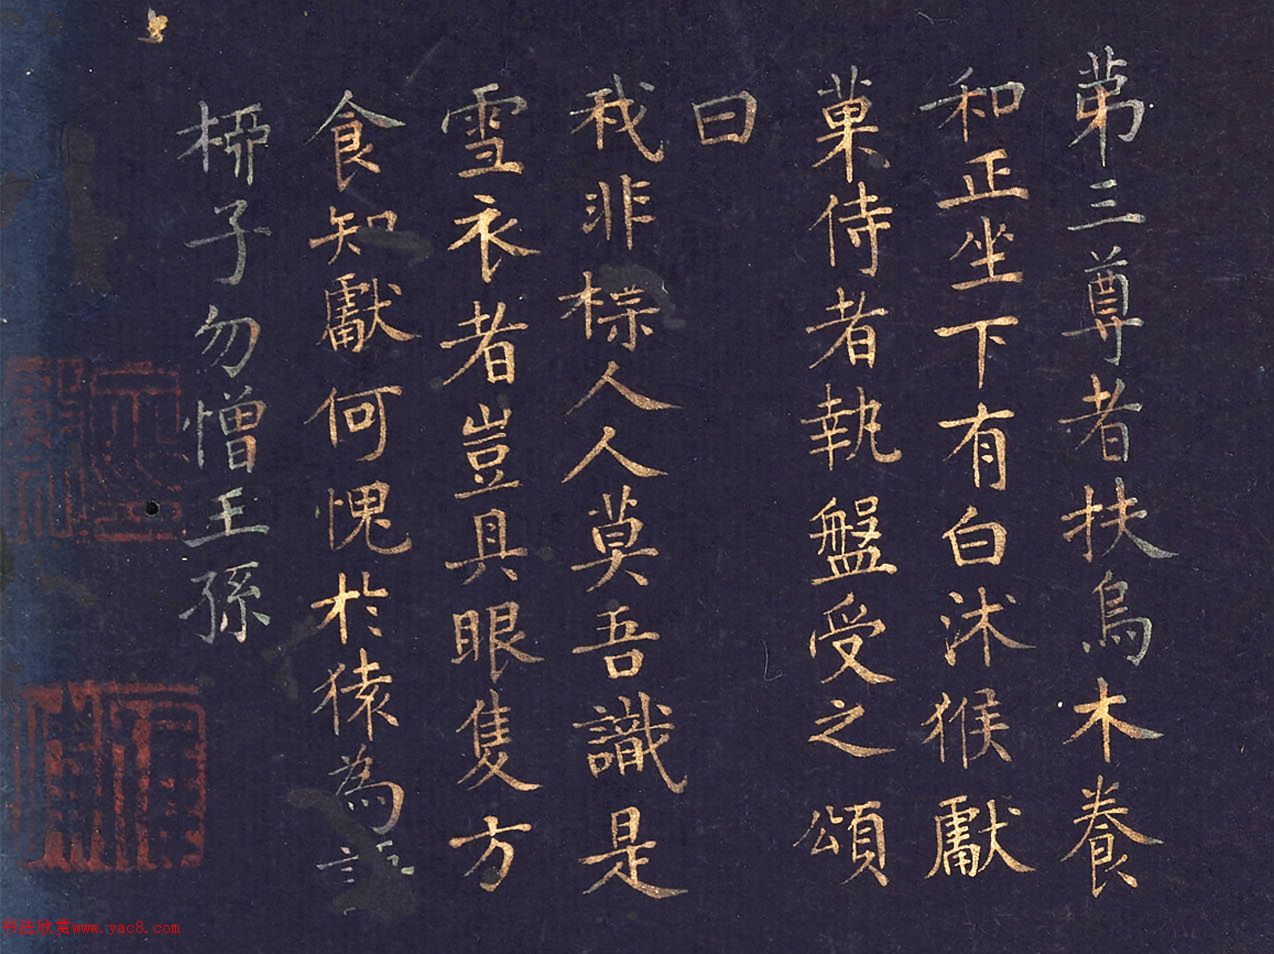 苐三尊者扶烏木養
和正坐下有白沐猴獻
菓侍者執盤受之頌
曰
我非標人人莫吾識是
雪衣者豈具眼隻方
食知獻何愧於猿為語
柳子勿憎王孫
书法欣赏www.yac8.com